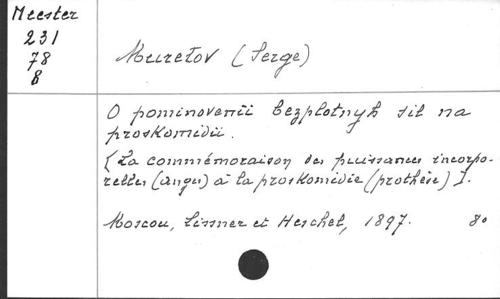 Meester
231
78
8
Muretov (Serge)
O pominovenii bezplotnyh sil na
proskomidii.
[La commémoraison des puissances incorpo-
relles (anges) à la proskomidie (prothèse)].
Moscou, Lissner et Heschel, 1897. 8°